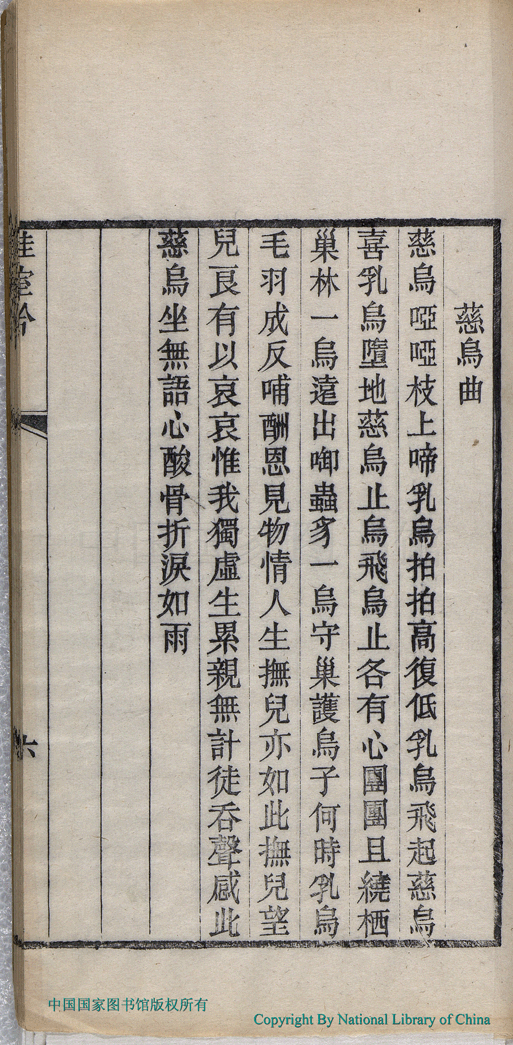 慈烏曲
慈烏啞啞枝上啼乳烏拍拍高復低乳烏飛起慈烏
喜乳烏墮地慈烏止烏飛烏止各有心團團且繞栖
巢林一烏遠出啣蟲豸一烏守巢護烏子何時乳烏
毛羽成反哺酬恩見物情人生撫兒亦如此撫兒望
兒良有以哀哀惟我獨虛生累親無計徒吞聲感此
慈烏坐無語心酸骨折淚如雨
六
中国国家图书馆版权所有
Copyright By National Library of China